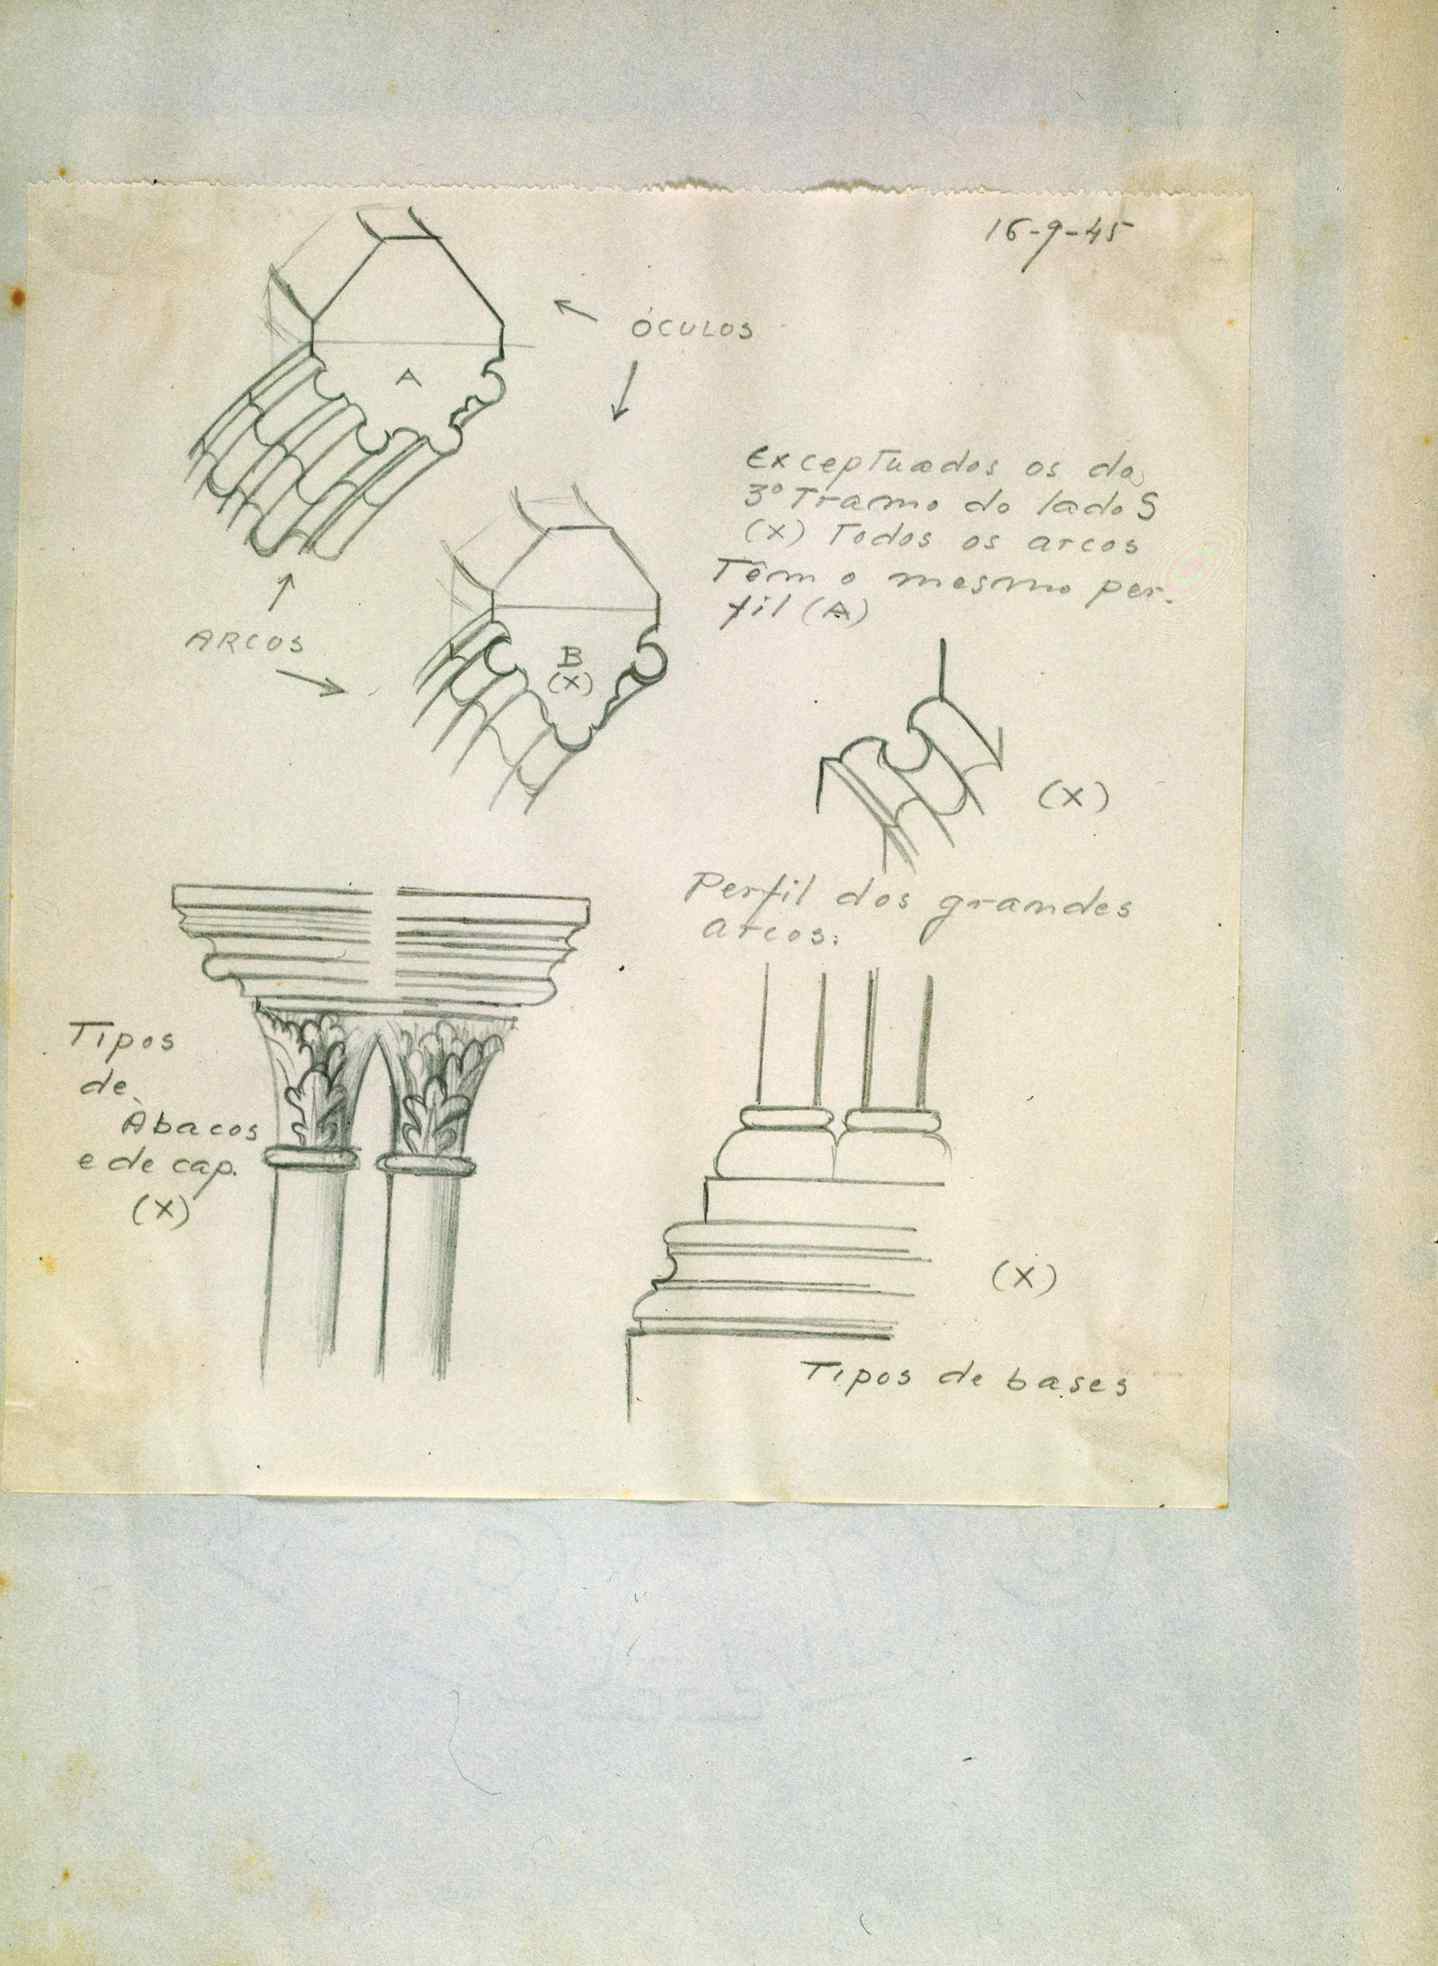 16-9-45
ÓCULOS
A
Exceptuados os do
3º Tramo do lado S
(X) Todos os arcos
Têm o mesmo per-
fil (A)
ARCOS
B
(X)
(X)
Perfil dos grandes
arcos:
Tipos
de
Àbacos
e de cap.
(X)
(X)
Tipos de bases